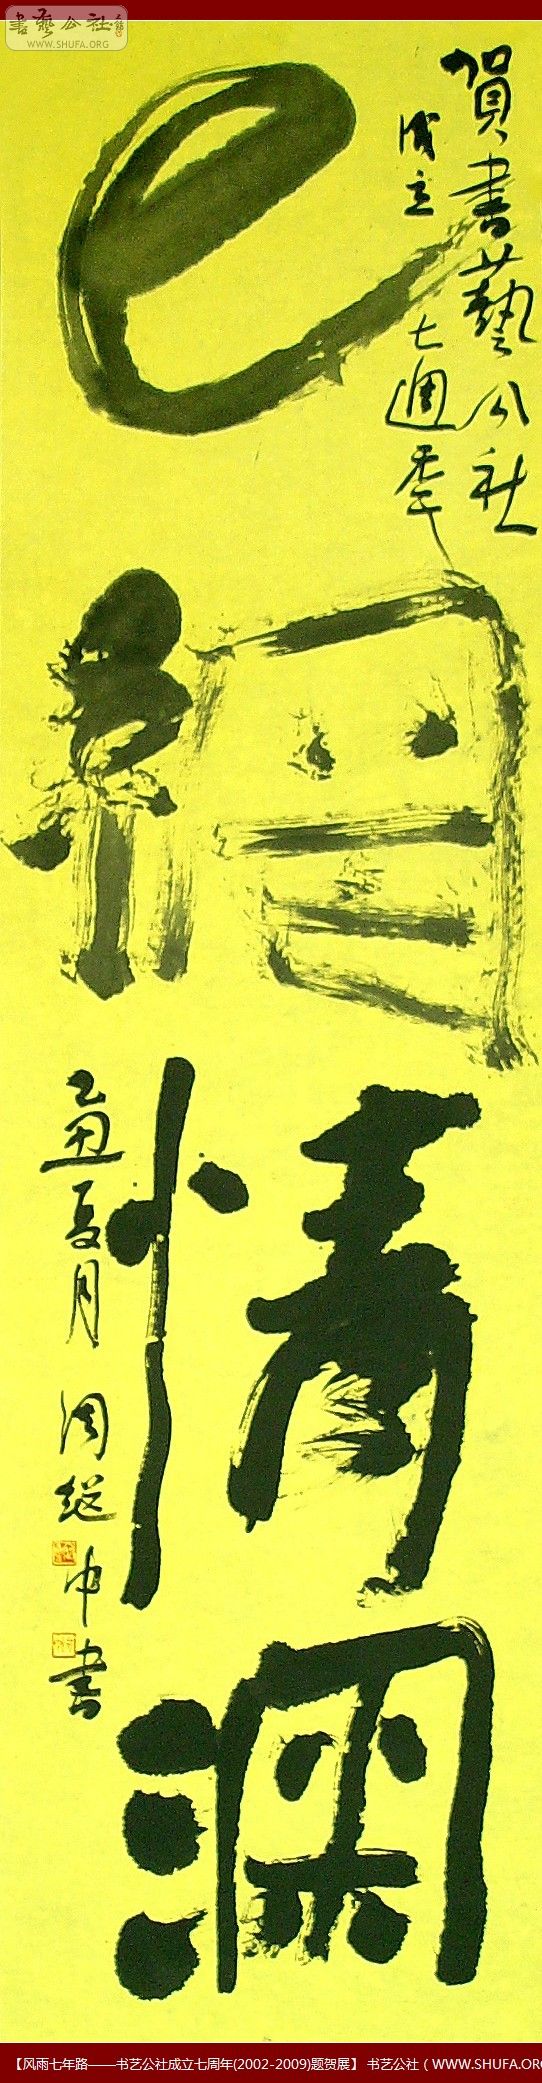 書藝公社
WWW.SHUFA.ORG
賀書藝公社
成立七週年
e網情深
己丑夏月 周继中書
【风雨七年路——书艺公社成立七周年(2002-2009)题贺展】 书艺公社（WWW.SHUFA.ORG